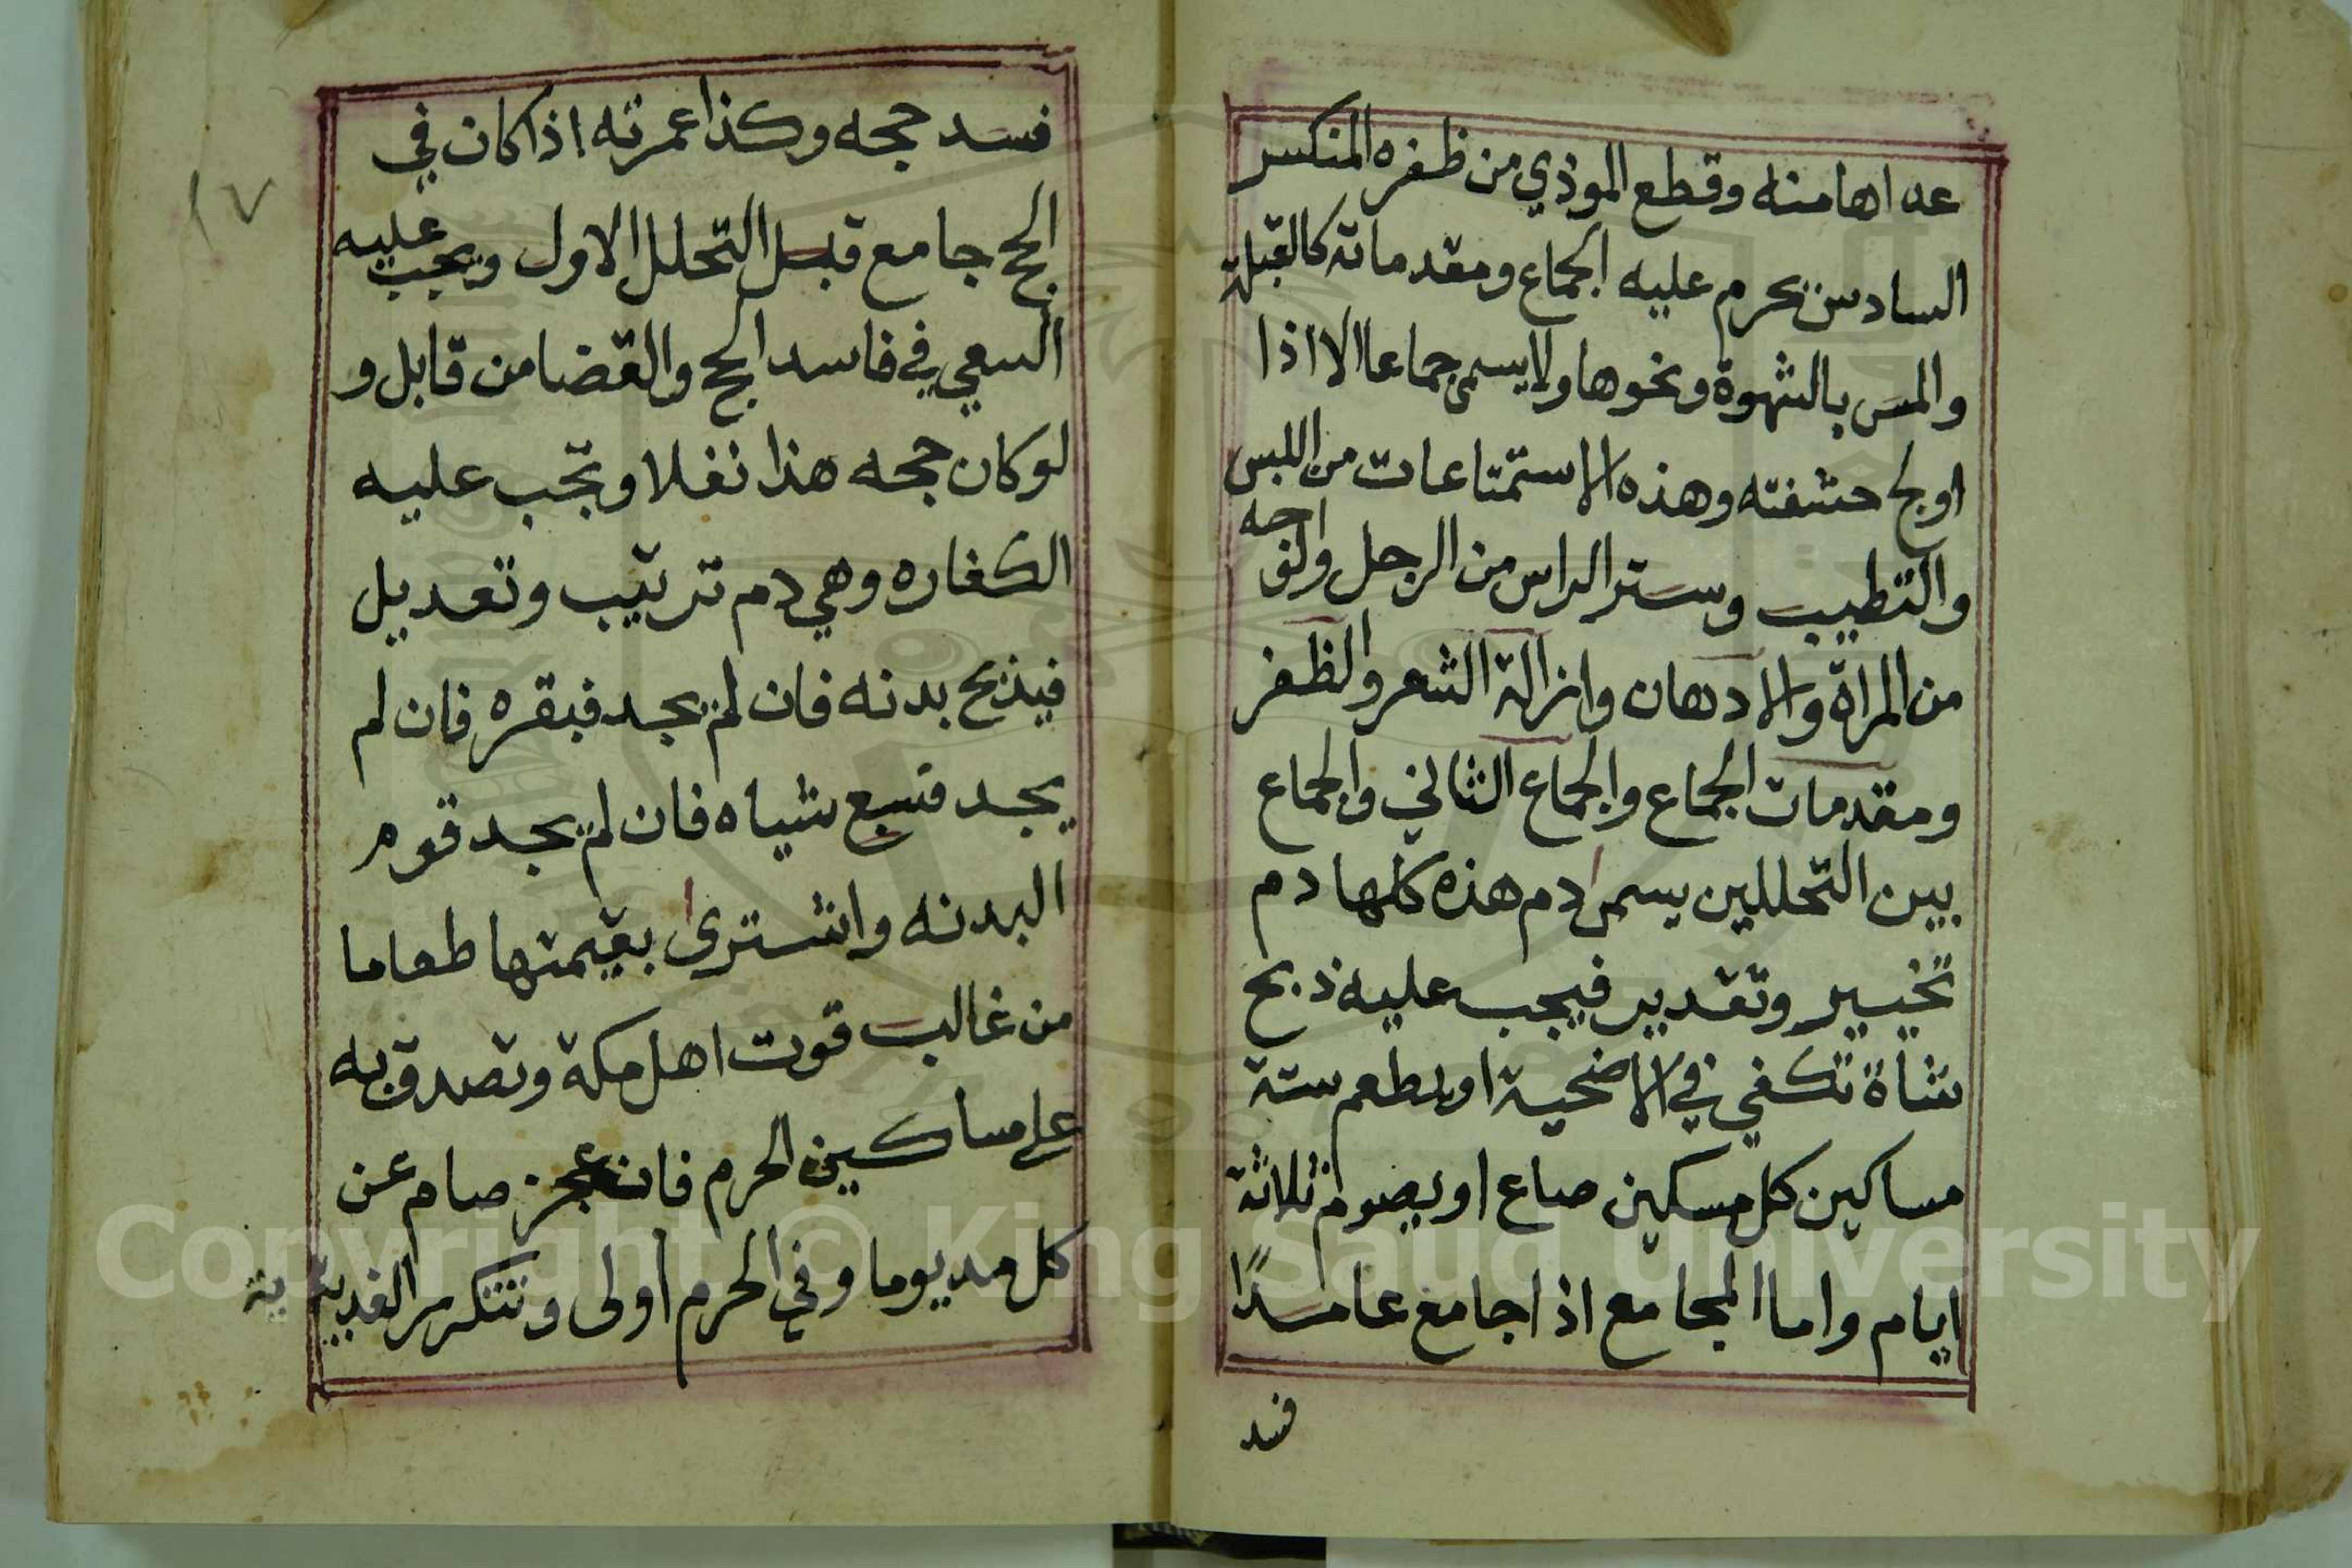 عداهامنه وقطع الموذي من ظفره المنكسر
السادس يحرم عليه الجماع ومقدماته كالقبلة
والمس بالشهوة ونحوها ولايسمى جماعا الا اذا
اولج حشفته وهذه الاستمتاعات من اللبس
والتطيب وستر الراس من الرجل والوجه
من المراة والادهان وازالة الشعر والظفر
ومقدمات الجماع والجماع الثاني والجماع
بين التحللين يسمى دم هذه كلها دم
تخيير وتقدير فيجب عليه ذبح
شاة تكفي في الاضحية او يطعم ستة
مساكين كل مسكين صاع او يصوم ثلاثة
ايام واما المجامع اذا جامع عامدًا
فسد
١٧
فسد حجه وكذا عمرته اذا كان في
الحج جامع قبل التحلل الاول ويجب عليه
السعي في فاسد الحج والقضا من قابل و
لو كان حجه هذا نفلا وتجب عليه
الكفاره وهي دم ترتيب وتعديل
فيذبح بدنه فان لم يجد فبقره فان لم
يجد فسبع شياه فان لم يجد قوم
البدنه واشترى بقيمتها طعاما
من غالب قوت اهل مكة وتصدق به
على مساكين الحرم فان عجز صام عن
كل مد يوما وفي الحرم اولى وتتكرر الفدية
Copyright © King Saud University